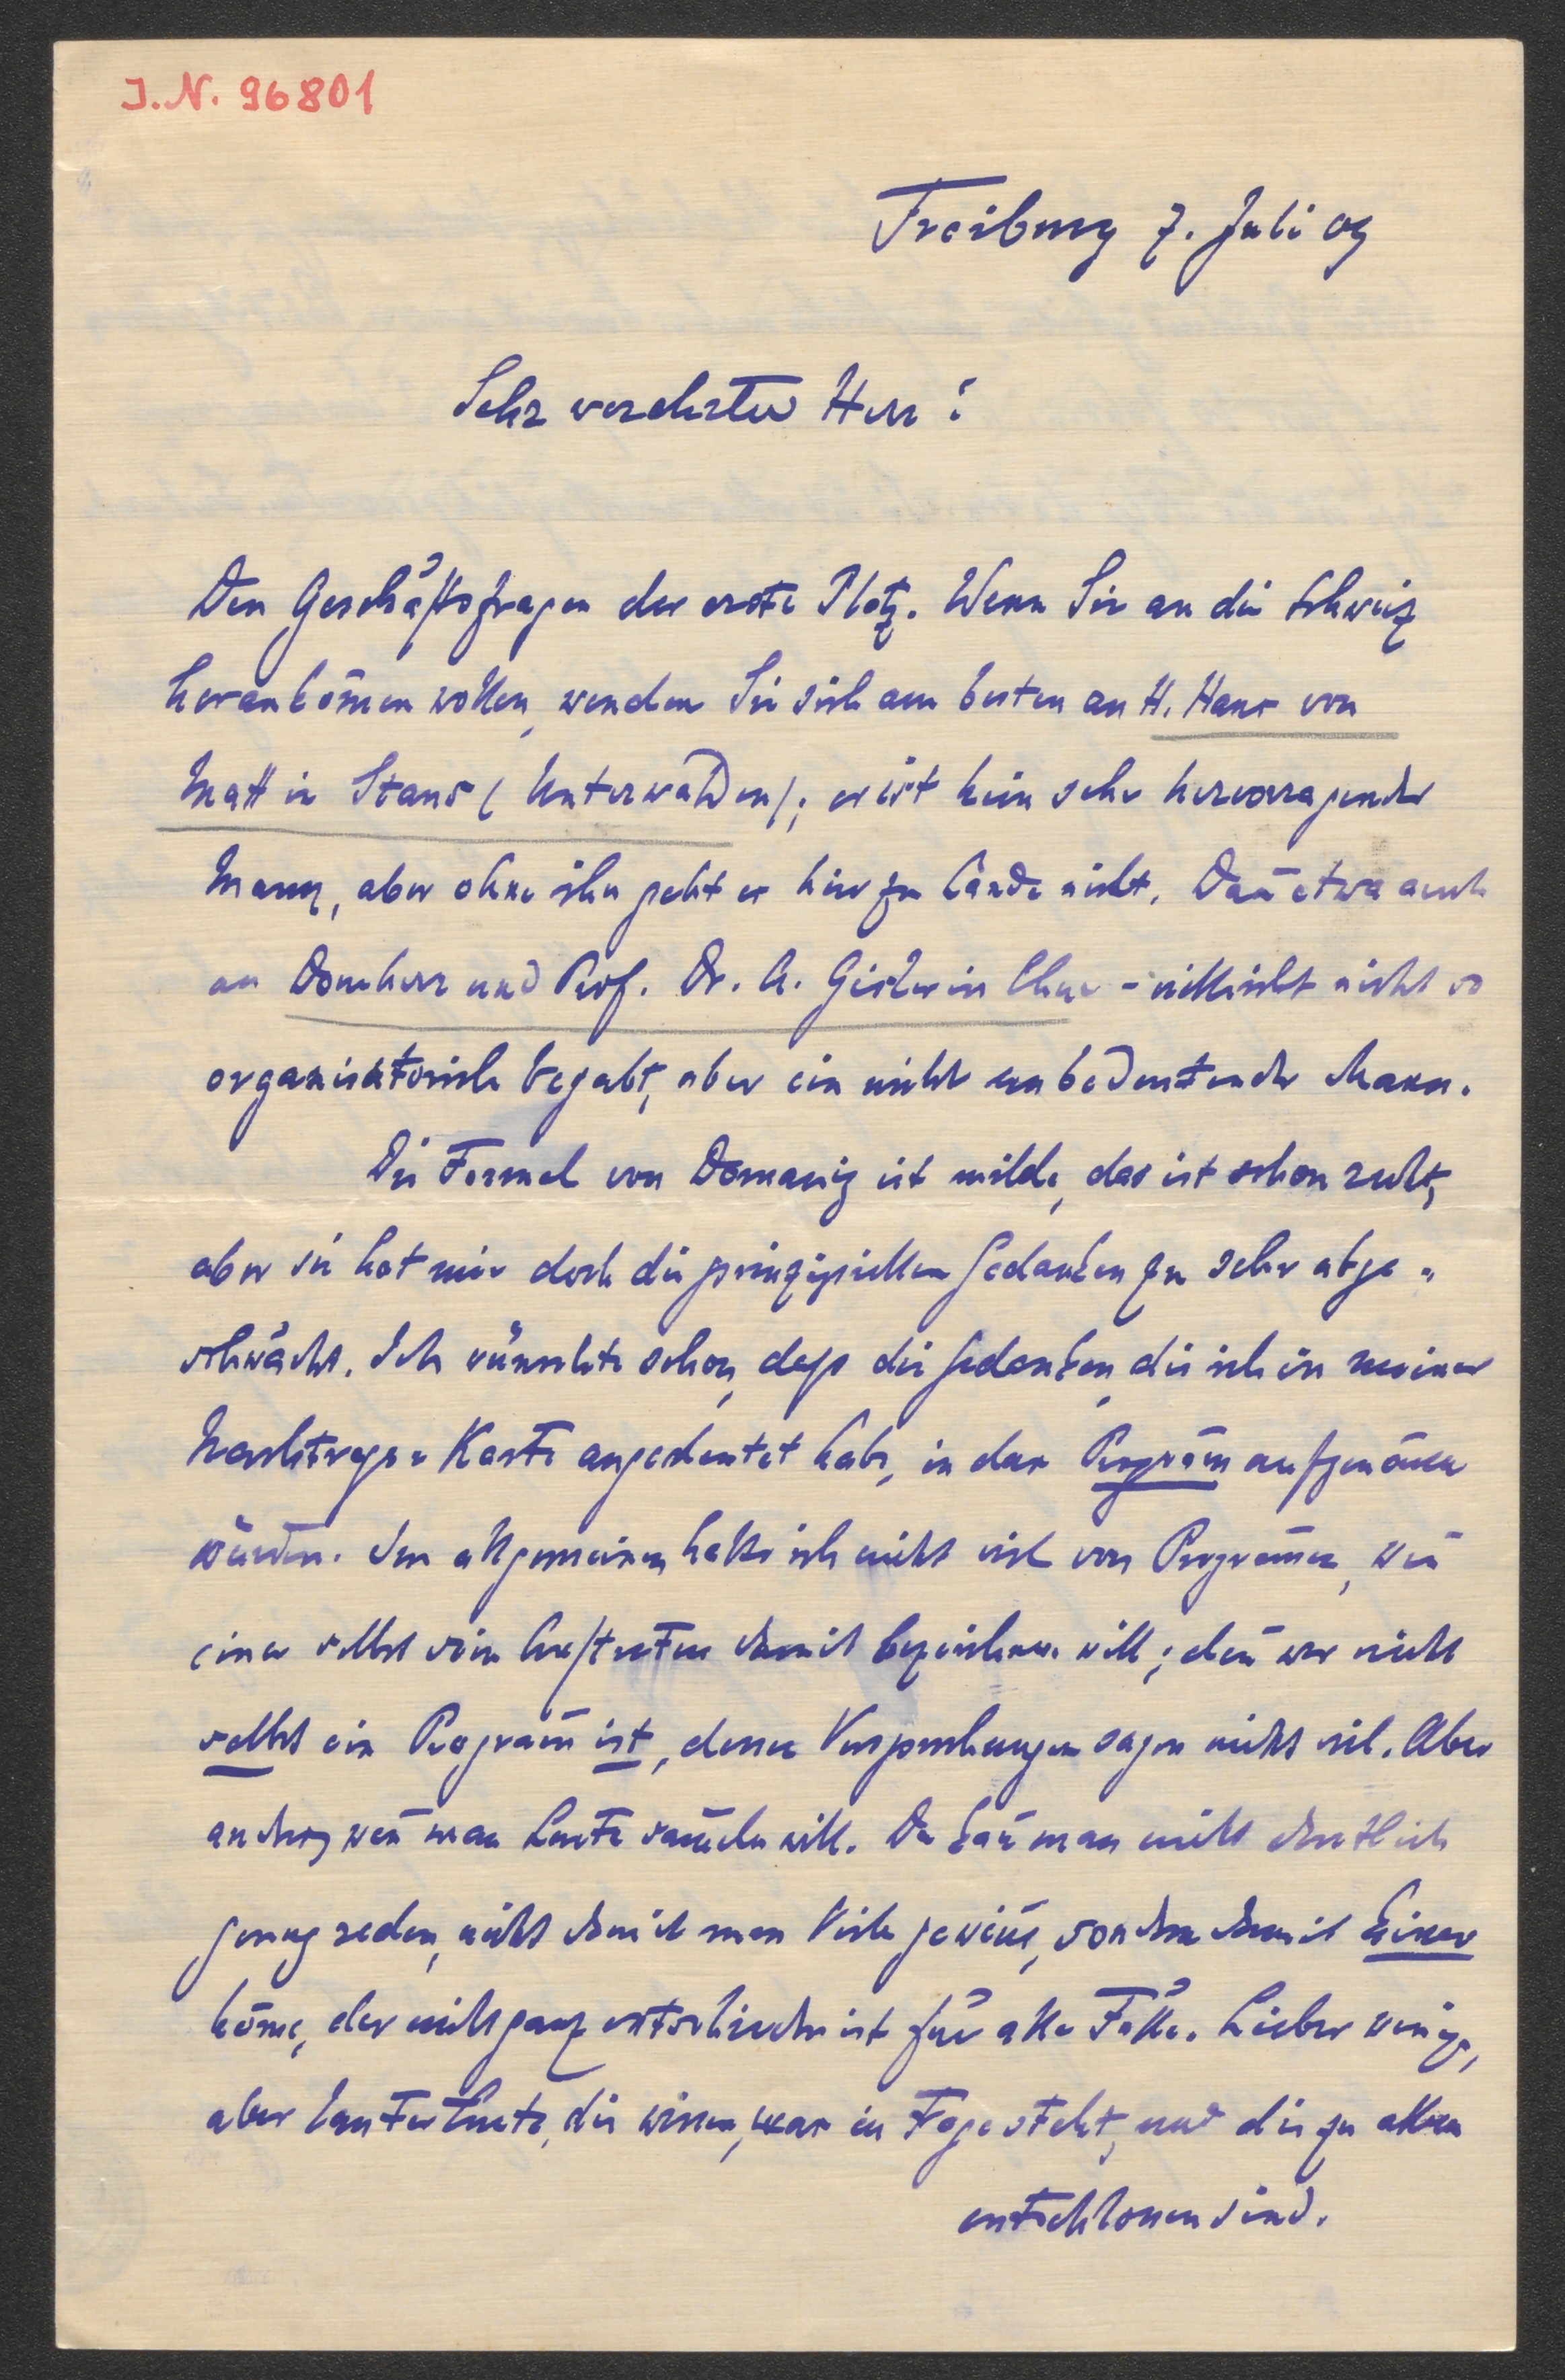 J.N. 96801
Freiburg 7. Juli 09
Sehr verehrter Herr!
Den Geschäftsfragen der erste Platz. Wenn Sie an die Schweiz
herankom̄en wollen, wenden Sie sich am besten an H. Hans von
Matt in Stans (Unterwalden); er ist kein sehr hervorragender
Mann, aber ohne ihn geht es hier zu Lande nicht. Dan̄ etwa auch
an Domherr und Prof. Dr. A. Gisler in Chur - vielleicht nicht so
organisatorisch begabt, aber ein nicht unbedeutender Mann.
Die Formel von Domanig ist milde, das ist schon recht,
aber sie hat mir doch die prinzipiellen Gedanken zu sehr abge-
schwächt. Ich wünschte schon, dass die Gedanken, die ich in meiner
Nachtrags-Karte angedeutet habe, in das Program̄ aufgenom̄en
würden. Im allgemeinen halte ich nicht viel von Program̄en, wen̄
einer selbst sein Auftreten damit bezeichnen will; den̄ wer nicht
selbst ein Program̄ ist, dessen Versprechungen sagen nicht viel. Aber
anders, wen̄ man Leute sam̄eln will. Da kan̄ man nicht deutlich
genug reden, nicht damit man Viele gewin̄e, sondern damit Keiner
kom̄e, der nicht ganz entschieden ist für alle Fälle. Lieber wenige,
aber lauter Leute, die wissen, was in Frage steht, und die zu allem
entschlossen sind.